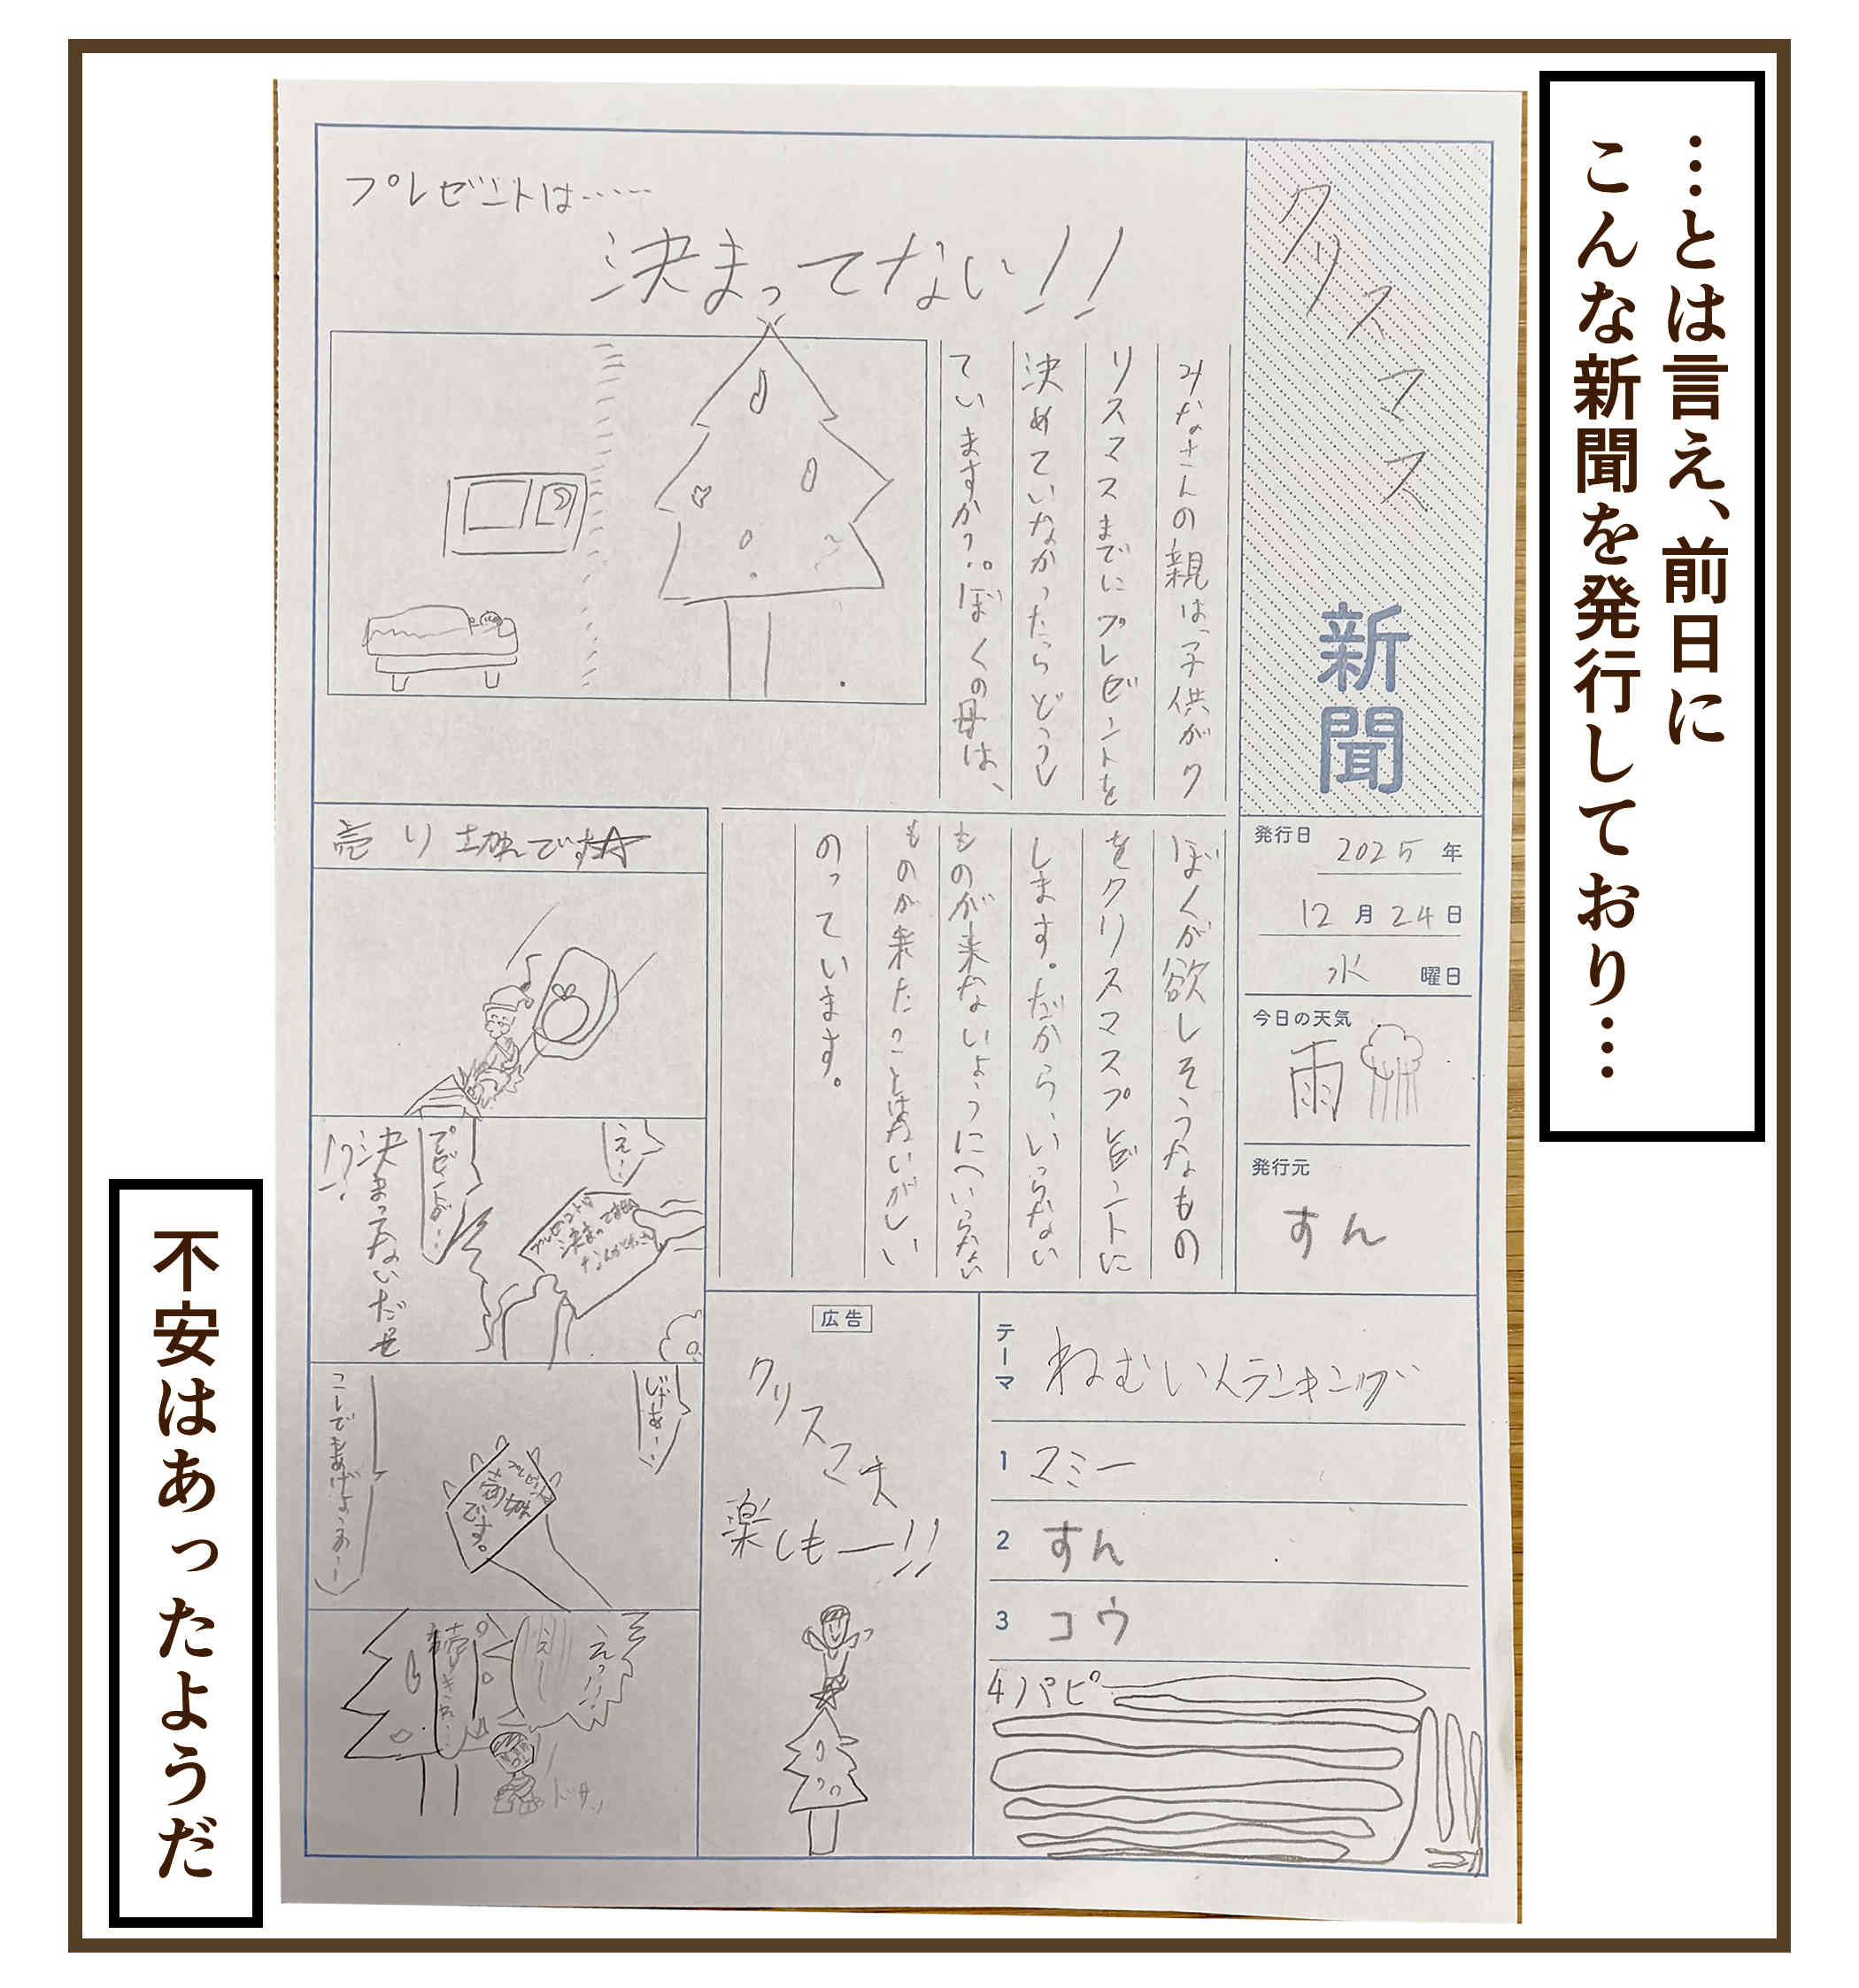 …とは言え、前日に
こんな新聞を発行しており…
クリスマス
新聞
プレゼントは……
決まってない!!
みなさんの親は、子供がク
リスマスまでにプレゼントを
決めていなかったらどうし
ていますか?。ぼくの母は、
ぼくが欲しそうなもの
をクリスマスプレゼントに
します。だから、いらない
ものが来ないようにへいらない
ものが来たことはないがしい
のっています。
発行日 2025 年
12 月 24 日
水 曜日
今日の天気
雨
発行元
すん
売り切れです
えー
プレゼントは
決まってます
なんかください
決まってないだぜ
!?
じゃあ…
プレゼント
売り切れ
です。
コレでもあげよぉー
えっ!!
えー
売りきれ…
ドサッ
広告
クリスマス
楽しもー!!
テーマ
ねむい人ランキング
1 マミー
2 すん
3 コウ
4 パピー
不安はあったようだ